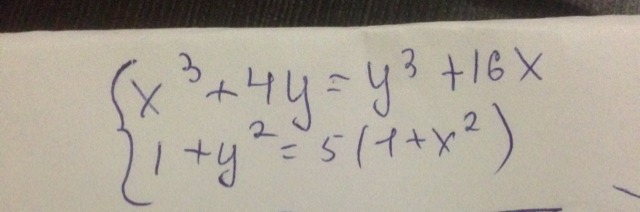 x³+4y=y³+16x
1+y²=5(1+x²)